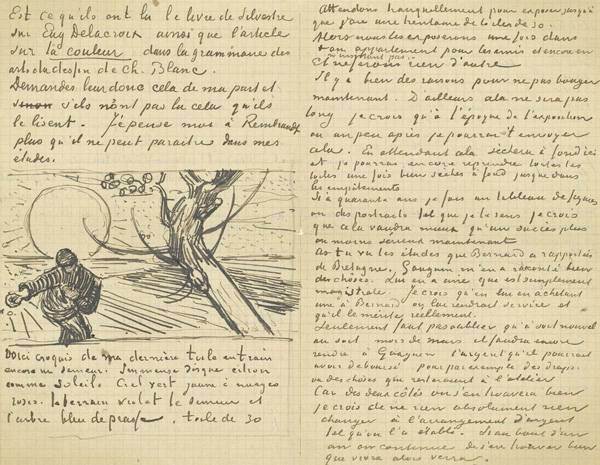 Est ce qu'ils ont lu le livre de Silvestre
sur Eug Delacroix ainsi que l'article
sur la couleur dans la grammaire des
arts du dessin de Ch. Blanc.
Demandes leur donc cela de ma part et
sinon s'ils n'ont pas lu cela qu'ils
le lisent. J'pense moi à Rembrandt
plus qu'il ne peut paraitre dans mes
études.
Voici croquis de ma dernière toile en train
encore un semeur. Immense disque citron
comme soleil. Ciel vert jaune à nuages
roses. le terrain violet le semeur et
l'arbre bleu de prusse. toile de 30
Attendons tranquillement pour exposer jusqu'à
que j'aie une trentaine de toiles de 30.
Alors nous les exposerons une fois dans
ton appartement pour les amis et encore en
n'insistant pas.
Et ne ferons rien d'autre
Il y a bien des raisons pour ne pas bouger
maintenant. D'ailleurs cela ne sera pas
long je crois qu'à l'époque de l'exposition
ou un peu après je pourrai t'envoyer
cela. En attendant cela sechera à fond ici
et je pourrai encore reprendre toutes les
toiles une fois bien sèches à fond jusque dans
les empâtements
Si à quarante ans je fais un tableau de figures
ou des portraits tel que je le sens je crois
que cela vaudra mieux qu'un succès plus
ou moins serieux maintenant
As tu vu les études que Bernard a rapportées
de Bretagne, Gauguin m'en a raconté bien
des choses. Lui en a une qui est simplement
magistrale. Je crois qu'en lui en achetant
une à Bernard on lui rendrait service et
qu'il le mérite réellement.
Seulement faut pas oublier qu'à
au mois de mars il faudra encore
rendre à Gauguin l'argent qu'il pourrait
avoir deboursé pour par exemple des draps
ou des choses qui resteraient à l'atelier
Car des deux côtés on s'en trouvera bien
je crois de ne rien absolument rien
changer à l'arrangement d'argent
tel qu'on l'a établi. Si au bout d'un
an on continue de s'en trouver bien
que vivra alors verra.